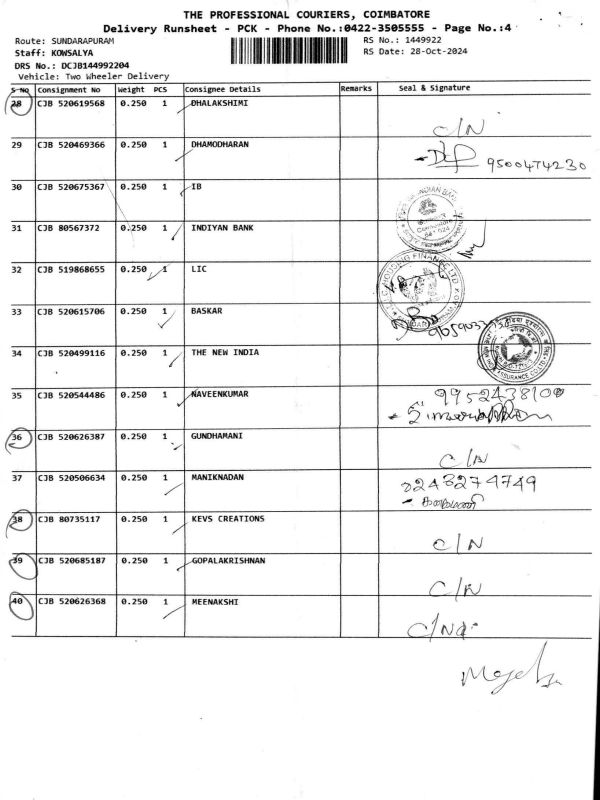 THE PROFESSIONAL COURIERS, COIMBATORE
Delivery Runsheet - PCK - Phone No.:0422-3505555 - Page No.:4
Route: SUNDARAPURAM RS No.: 1449922
Staff: KOWSALYA RS Date: 28-Oct-2024
DRS No.: DCJB144992204
Vehicle: Two Wheeler Delivery
S No Consignment No Weight PCS Consignee Details Remarks Seal & Signature
28 CJB 520619568 0.250 1 DHALAKSHIMI C/N
29 CJB 520469366 0.250 1 DHAMODHARAN 9500474230
30 CJB 520675367 0.250 1 IB
31 CJB 80567372 0.250 1 INDIYAN BANK
32 CJB 519868655 0.250 1 LIC
33 CJB 520615706 0.250 1 BASKAR
34 CJB 520499116 0.250 1 THE NEW INDIA
35 CJB 520544486 0.250 1 NAVEENKUMAR 9952438100
36 CJB 520626387 0.250 1 GUNDHAMANI C/N
37 CJB 520506634 0.250 1 MANIKNADAN 8243274749
38 CJB 80735117 0.250 1 KEVS CREATIONS C/N
39 CJB 520685187 0.250 1 GOPALAKRISHNAN C/N
40 CJB 520626368 0.250 1 MEENAKSHI C/N